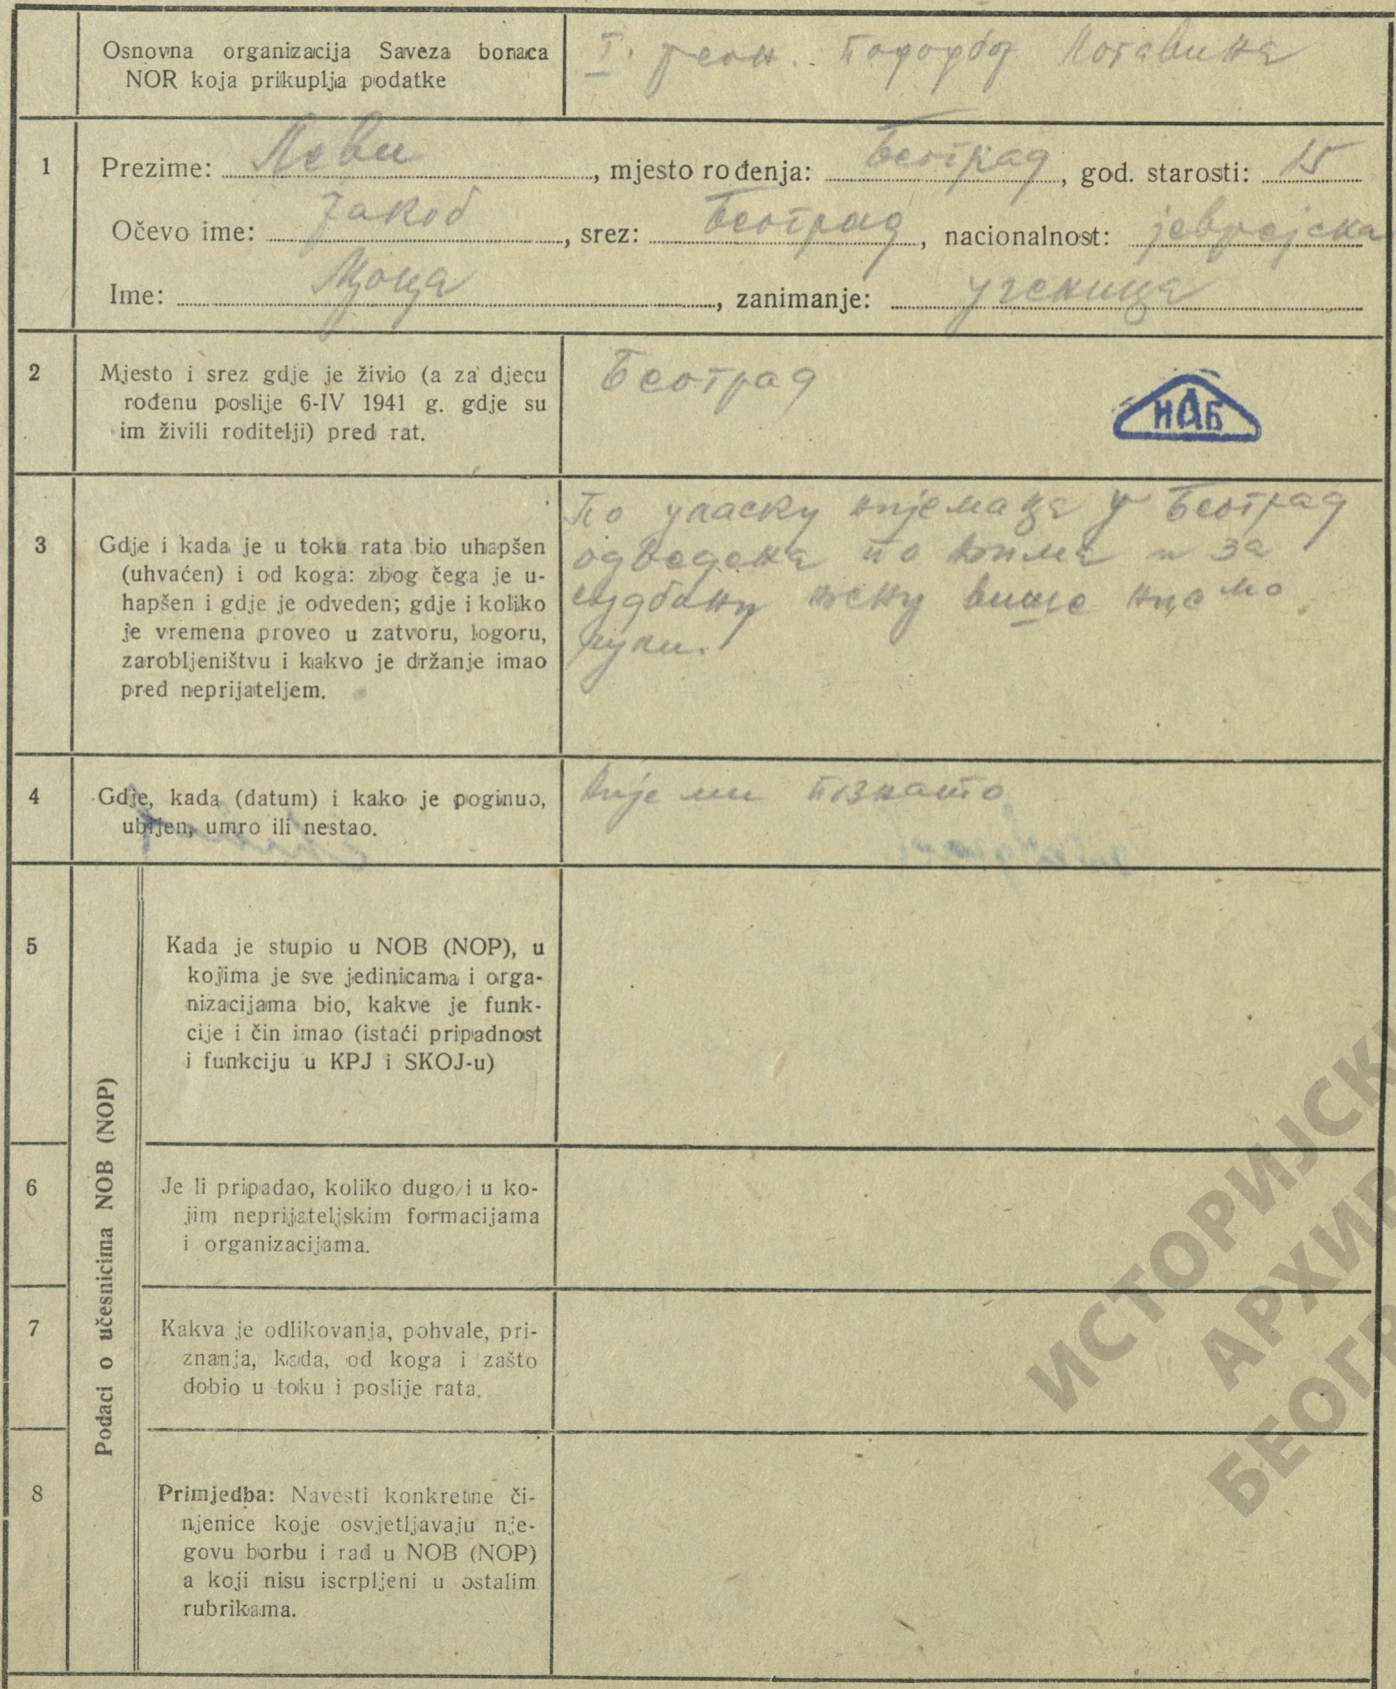 Osnovna organizacija Saveza boraca
NOR koja prikuplja podatke
I. реон. пододбор Логавина
1 Prezime: Леви, mjesto rođenja: Београд, god. starosti: 15
Očevo ime: Јакоб, srez: Београд, nacionalnost: јеврејска
Ime:, zanimanje: ученица
2 Mjesto i srez gdje je živio (a za djecu
rođenu poslije 6-IV 1941 g. gdje su
im živili roditelji) pred rat.
Београд
НАБ
3 Gdje i kada je u toku rata bio uhapšen
(uhvaćen) i od koga: zbog čega je u-
hapšen i gdje je odveden; gdje i koliko
je vremena proveo u zatvoru, logoru,
zarobljeništvu i kakvo je držanje imao
pred neprijateljem.
По уласку нијемаца у Београд
одведена по њима и за
судбину њену више нисмо
чули.
4 Gdje, kada (datum) i kako je poginuo,
ubijen, umro ili nestao.
Није ми познато
Podaci o učesnicima NOB (NOP)
5 Kada je stupio u NOB (NOP), u
kojima je sve jedinicama i orga-
nizacijama bio, kakve je funk-
cije i čin imao (istaći pripadnost
i funkciju u KPJ i SKOJ-u)
6 Je li pripadao, koliko dugo i u ko-
jim neprijateljskim formacijama
i organizacijama.
7 Kakva je odlikovanja, pohvale, pri-
znanja, kada, od koga i zašto
dobio u toku i poslije rata.
8 Primjedba: Navesti konkretne či-
njenice koje osvjetljavaju nje-
govu borbu i rad u NOB (NOP)
a koji nisu iscrpljeni u ostalim
rubrikama.